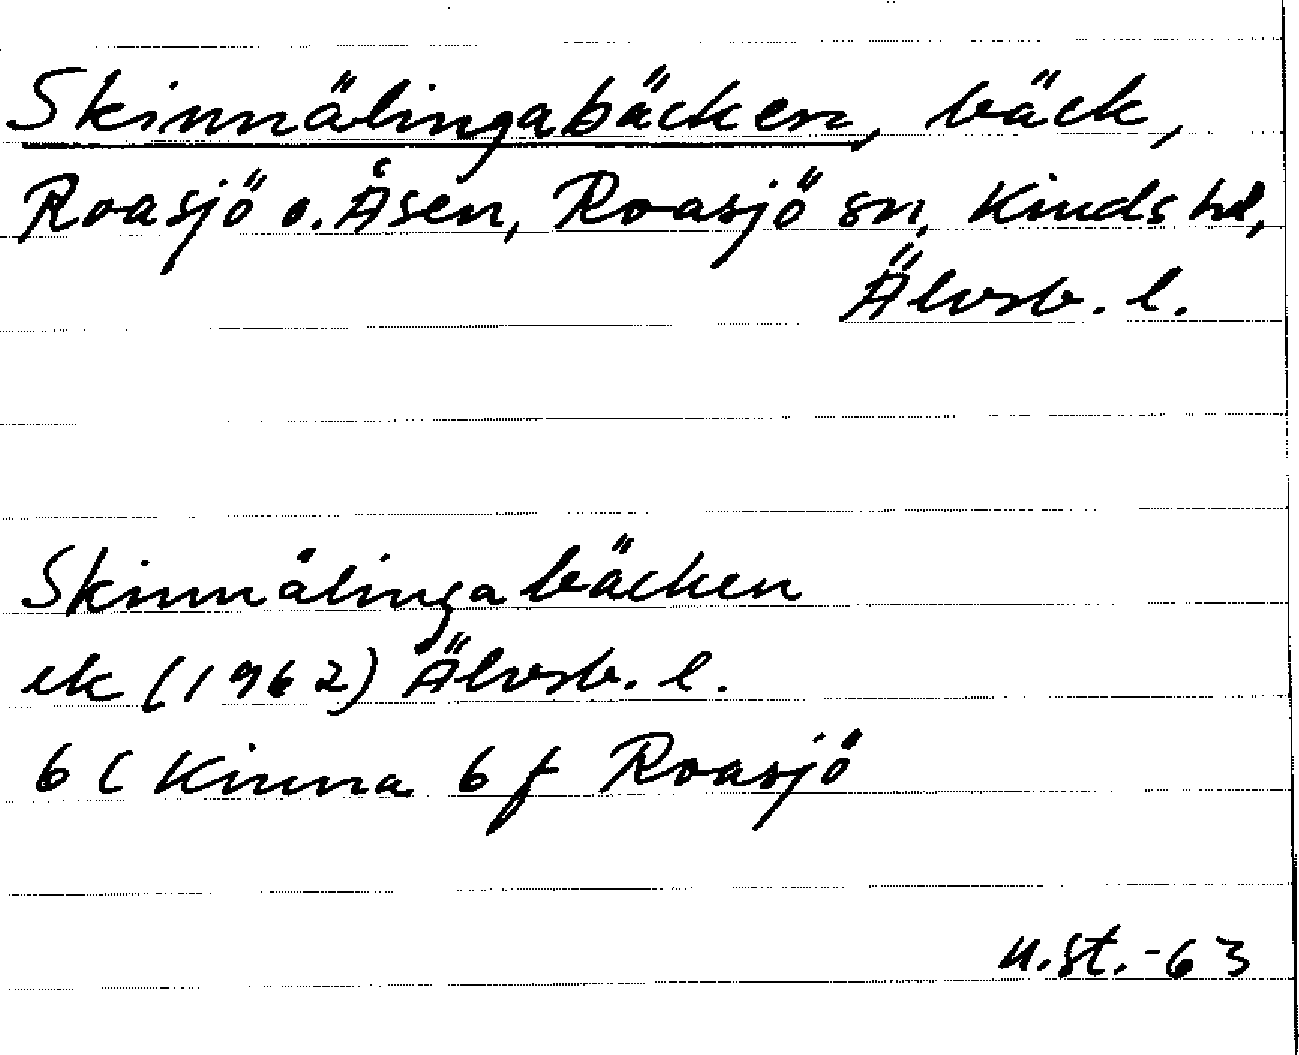 Skinnälingabäcken, bäck,
Roasjö o. Åsen, Roasjö sn, Kinds hd,
Älvsb. l.
Skinnälingabäcken
ek (1962) Älvsb. l.
6 C Kinna 6 f Roasjö
u.st.-63